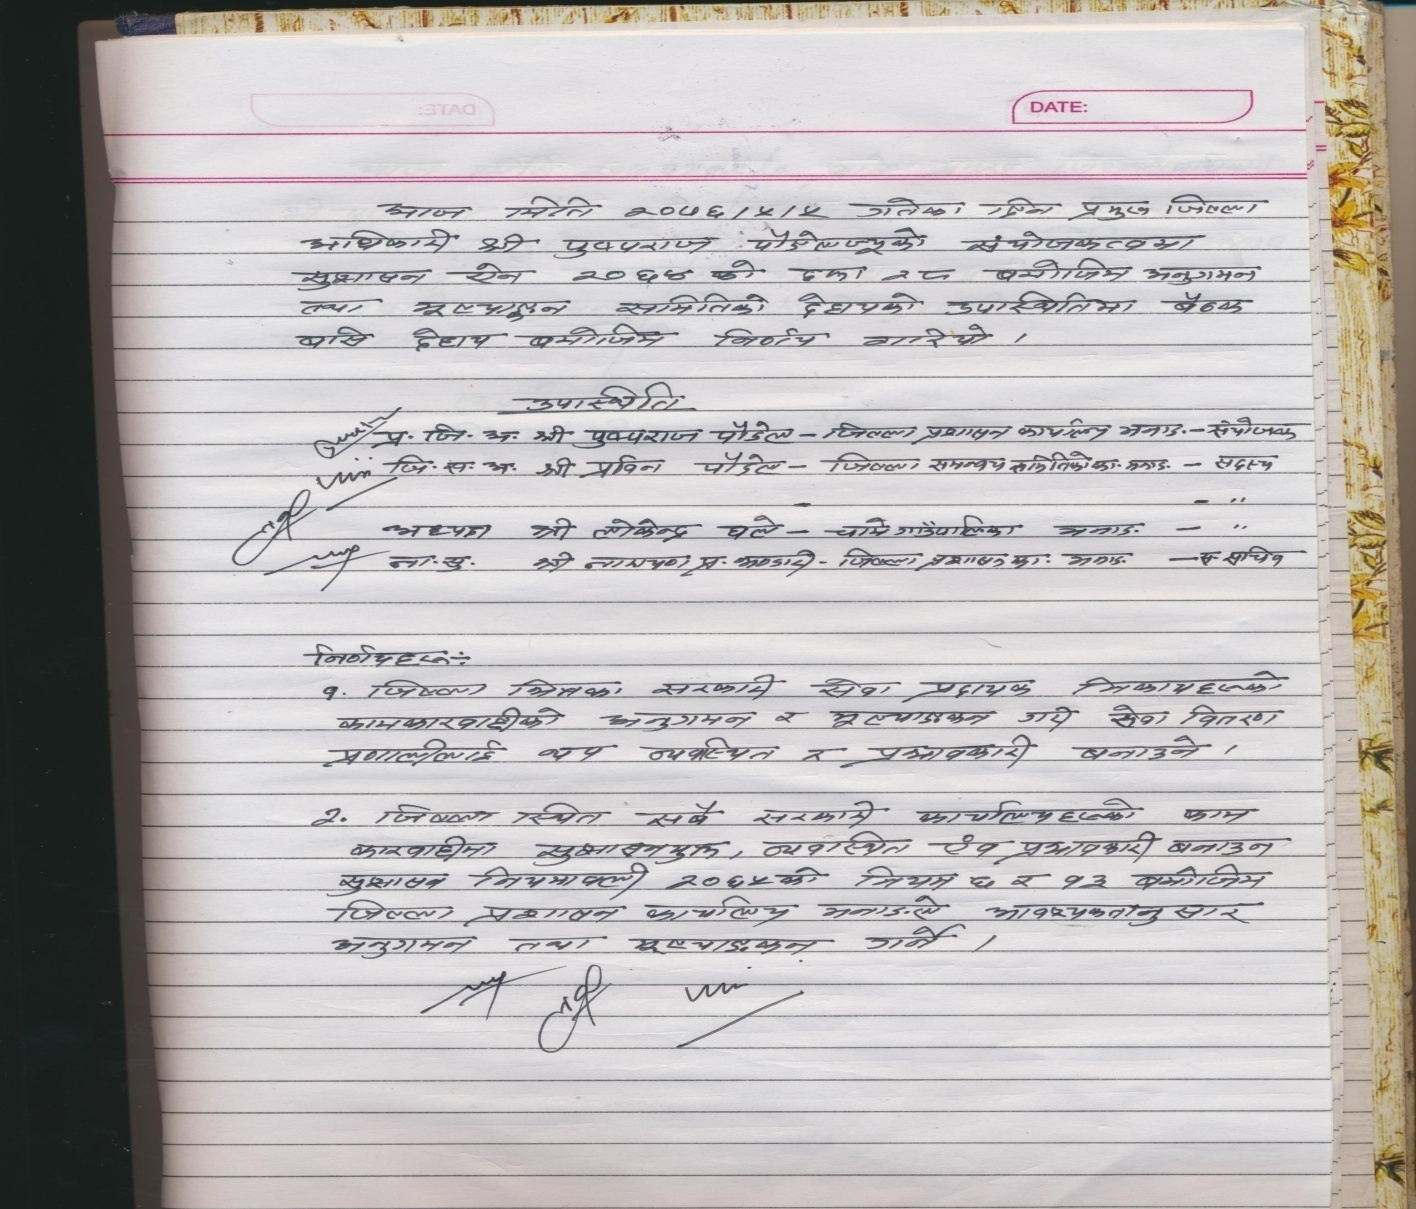 DATE:
आज मिति २०७६।४।४ गतेका दिन प्रमुख जिल्ला
अधिकारी श्री पुष्पराज पौडेलज्यूको संयोजकत्वमा
सुशासन ऐन २०६४ को दफा २८ बमोजिम अनुगमन
तथा मूल्याङ्कन समितिको देहायको उपास्थितिमा बैठक
बसि देहाय बमोजिम निर्णय गारियो ।
उपास्थिति
प्र. जि. अ. श्री पुष्पराज पौडेल – जिल्ला प्रशासन कार्यालय मनाङ – संयोजक
जि. स. अ. श्री प्रविन पौडेल – जिल्ला समन्वय समितिको का. मनाङ – सदस्य
– – "
अध्यक्ष श्री लोकेन्द्र घले – चामे गाउँपालिका मनाङ – "
ना. सु. श्री नारायण प्र. भण्डारी - जिल्ला प्रशासन का. मनाङ – स. सचिव
निर्णयहरूः
१. जिल्ला भित्रका सरकारी सेवा प्रदायक निकायहरूको
कामकारवाहीको अनुगमन र मूल्याङकन गरी सेवा वितरण
प्रणालीलाई व्यवस्थित र प्रभावकारी बनाउने ।
२. जिल्ला स्थित सबै सरकारी कार्यालयहरूको काम
कारवाहीमा सुशासनयुक्त, व्यवास्थित एंव प्रभावकारी बनाउन
सुशासन नियमावली २०६५को नियम ६ र १३ बमोजिम
जिल्ला प्रशासन कार्यालय मनाङले आवश्यकतानुसार
अनुगमन तथा मूल्याङकन गर्ने ।